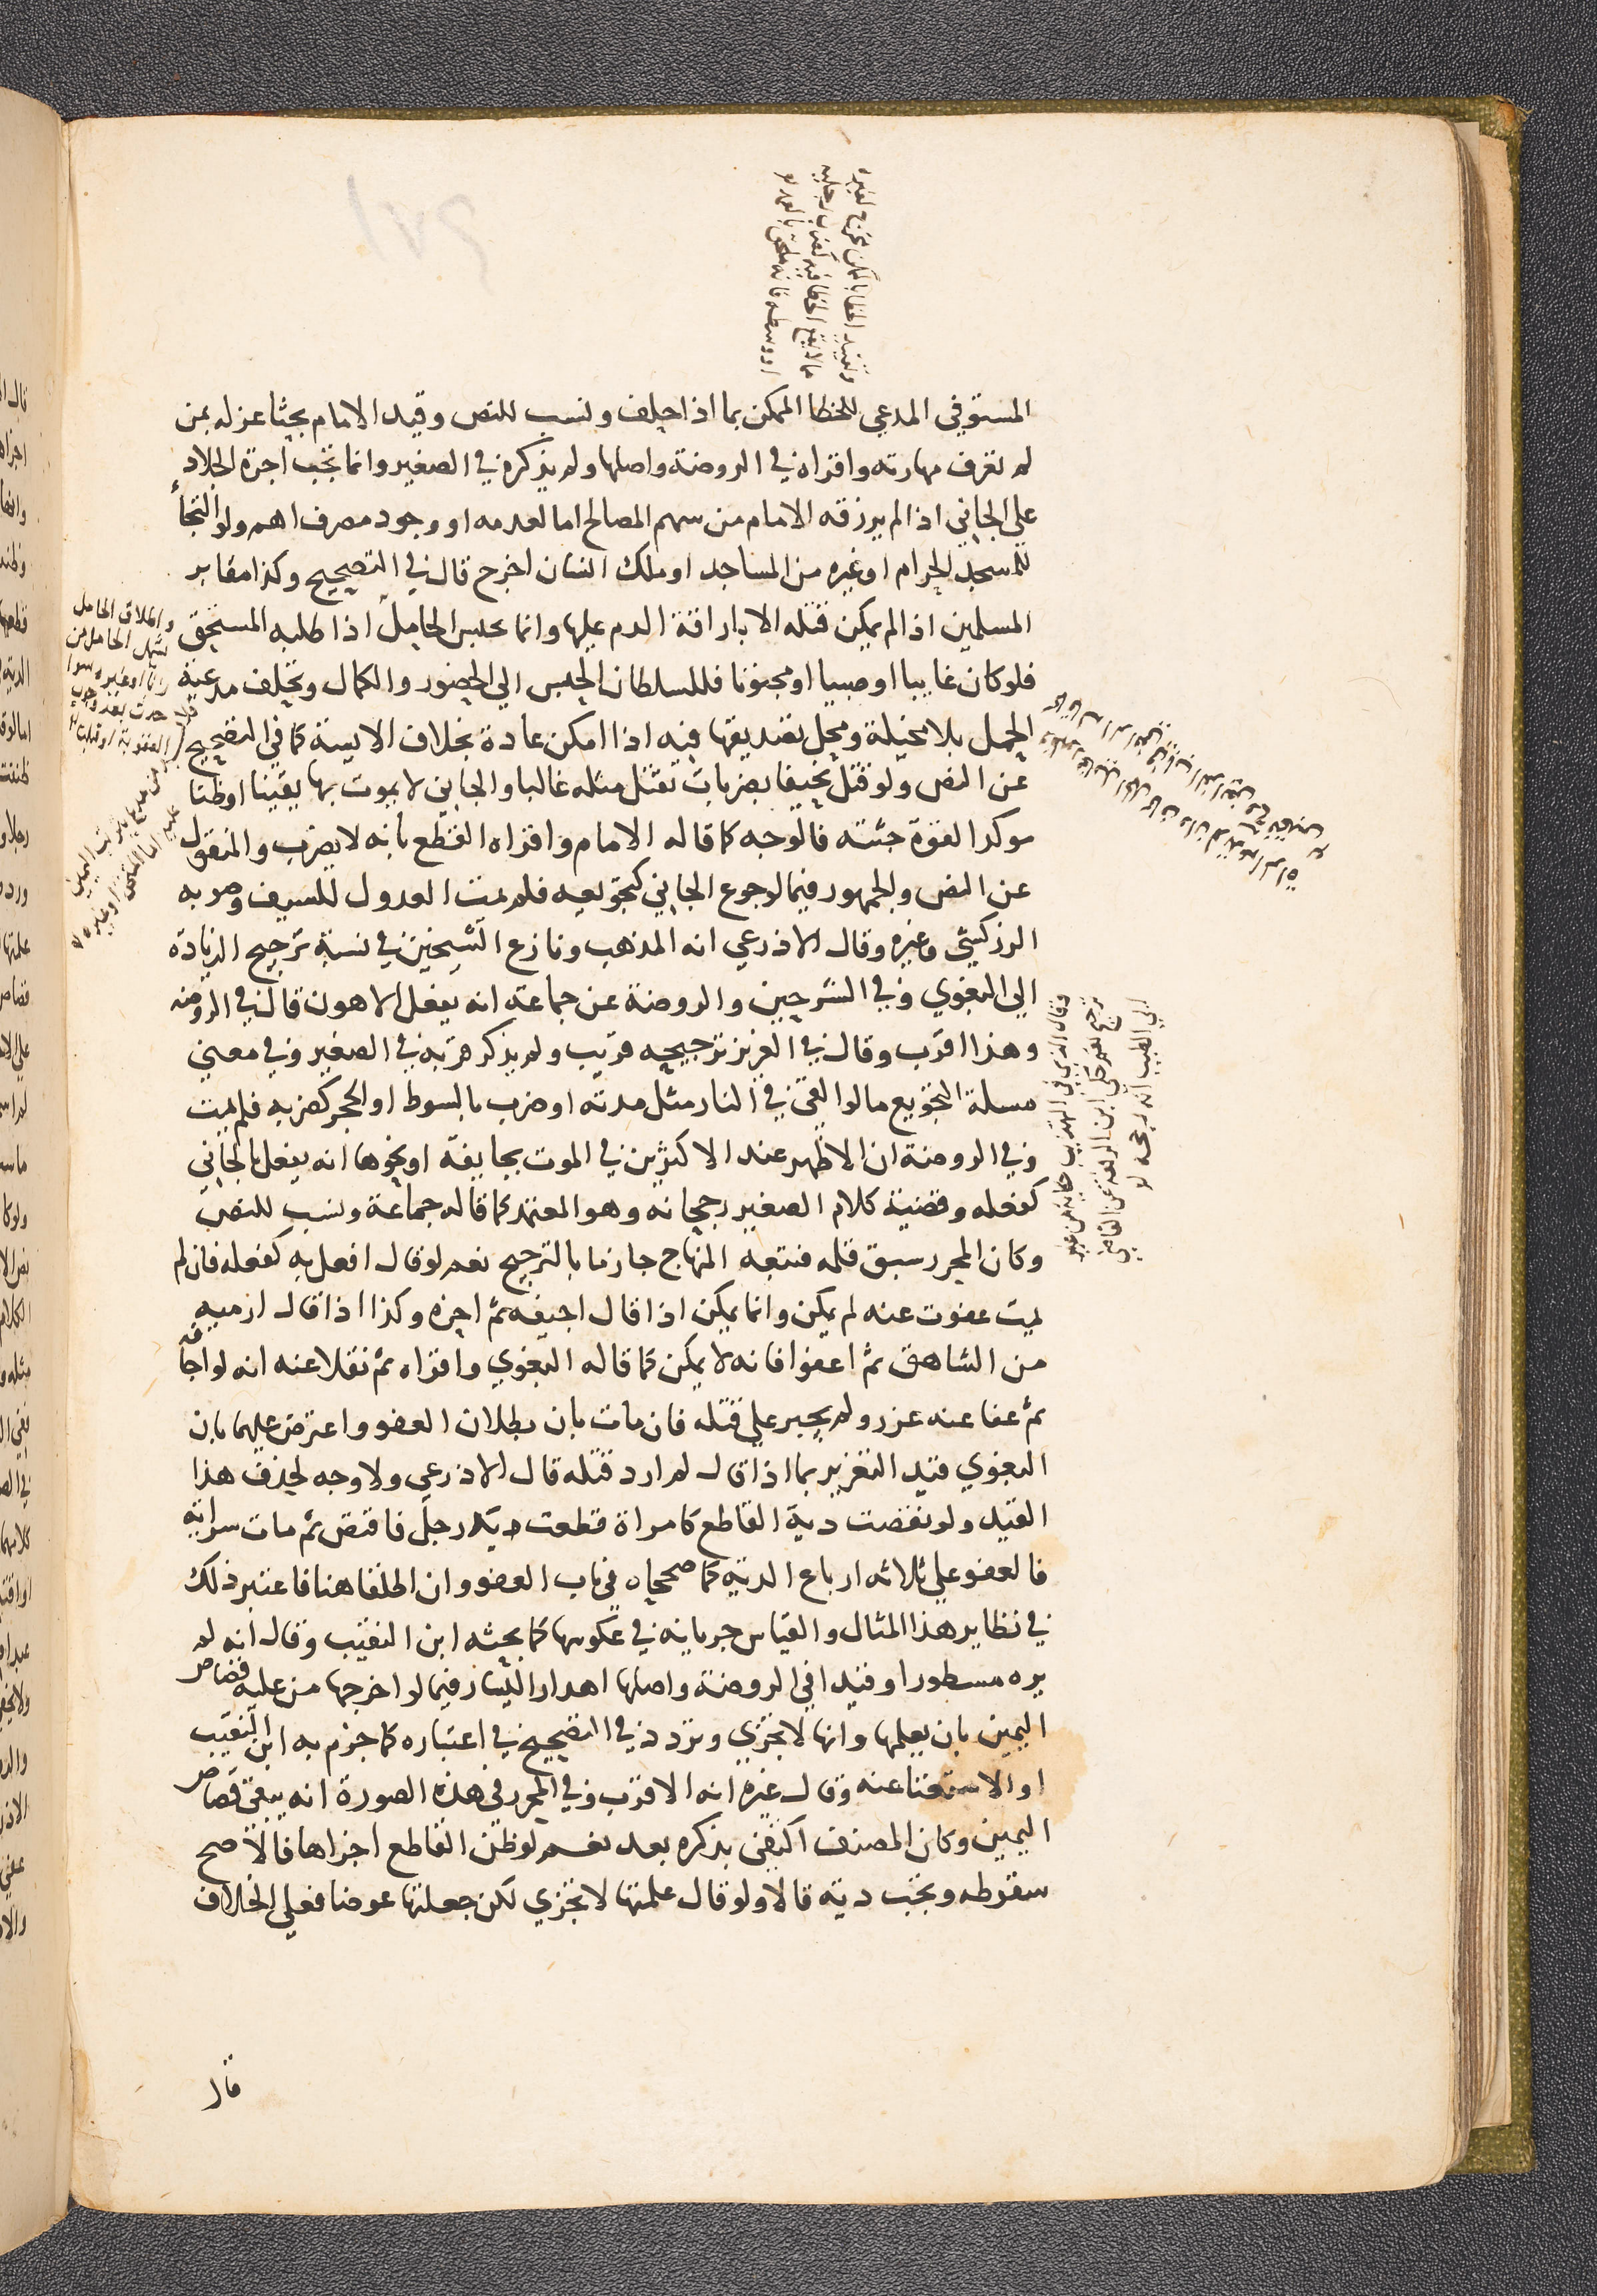 المستوفي المدعي للخطا الممكن بما اذا حلف ونسب للنص وقيد الامام بحثا عزله بمن
لم تعرف مهارته واقراه في الروضة واصلها ولم يذكره في الصغير وانما تجب اجرة الجلاد
علي الجاني اذا لم يرزقه الامام من سهم المصالح اما لعدمه او وجود مصرف اهم ولو التجأ
للمسجد الحرام او غيره من المساجد او ملك انسان اخرج قال في التصحيح وكذا مقابر
المسلمين اذا لم يمكن قتله الا باراقة الدم عليها وانما تحبس الحامل اذا طلبه المستحق
فلو كان غايبا او صبيا او مجنونا فللسلطان الحبس الي الحضور والكمال وتحلف مدعية
الحمل بلا مخيلة ومحل تصديقها فيه اذا امكن عادة بخلاف الايسة كما في التصحيح
عن النص ولو قتل نحيفا بضربات تقتل مثله غالبا والجاني لا يموت بها يقينا او ظنا
موكدا لقوة جثته فالوجه كما قاله الامام واقراه القطع بانه لا يضرب والمنقول
عن النص والجمهور فيما لو جوع الجاني كتجويعه فلم يمت العدول للسيف وصوبه
الزركشي وغيره وقال الاذرعي انه المذهب ونازع الشيخين في نسبة ترجيح الزيادة
الي البغوي وفي الشرحين والروضة عن جماعة انه يفعل الاهون قال في الروضه
وهذا اقرب وقال في العزيز ترجيحه قريب ولم يذكر قربه في الصغير وفي معني
مسلة التجويع ما لو القي في النار مثل مدته او ضرب بالسوط او الحجر كضربه فلم يمت
وفي الروضة ان الاظهر عند الاكثرين في الموت بجايفة او نحوها انه يفعل بالجاني
كفعله وقضية كلام الصغير رجحانه وهو المعتمد كما قاله جماعة ونسب للنص
وكان المحرر سبق قلم فتبعه المنهاج جازما بالترجيح نعم لو قال افعل به كفعله فان لم
يمت عفوت عنه لم يمكن وانما يمكن اذا قال اجيفه ثم احزه وكذا اذا قال ارميه
من الشاهق ثم اعفوا فانه لا يمكن كما قاله البغوي واقراه ثم نقلا عنه انه لو اجافه
ثم عفا عنه عزر ولم يجبر علي قتله فان مات بان بطلان العفو واعترض عليهما بان
البغوي قيد التعزير بما اذا قال لم ارد قتله قال الاذرعي ولا وجه لحذف هذا
القيد ولو نقصت دية القاطع كامراة قطعت يد رجل فاقتص ثم مات سراية
فالعفو علي ثلاثه ارباع الدية كما صححاه في باب العفو وان اطلقا هنا فاعتبر ذلك
في نظاير هذا المثال والقياس جريانه في عكوسها كما بحثه ابن النقيب وقال انه لم
يره مسطورا وقيدا في الروضة واصلها اهدار اليسار فيما لو اخرجها من عليه قصاص
اليمين بان يعلمها وانها لا تجزي وتردد في التصحيح في اعتباره كما جزم به ابن النقيب
او الاستغنا عنه وقال غيره انه الاقرب وفي المحرر في هذه الصورة انه يبقي قصاص
اليمين وكان المصنف اكتفي بذكره بعد نعم لو ظن القاطع اجزاها فالاصح
سقوطه وتجب دية قالا ولو قال علمتها لا تجزي لكن جعلتها عوضا فعلي الخلاف
قال
وتقييد الخطا بالممكن مخرج لغيره
مما لا يقع الخطا فيه كضرب رجليه
او وسطه فانه ملحق بالعمد
واطلاق الحامل
يشمل الحامل من
زنا او غيره سوا
حدث بعد وجوب
العقوبة او قبله
ترجيح نعم حكي ابن الرفعة عن القاضي
ابي الطيب انه رجحه